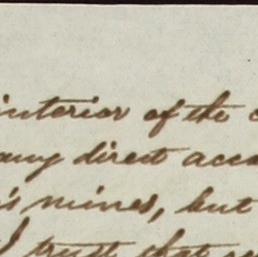 interior of the
any direct acco
is mines, but
I trust that